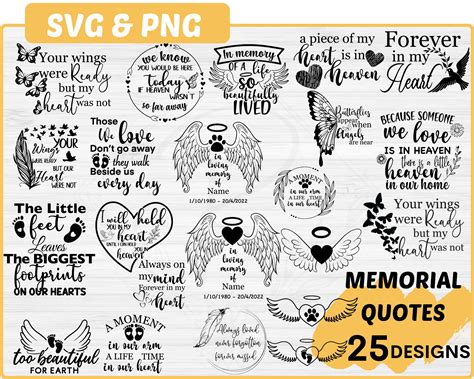 SVG & PNG
Your wings
were Ready
but my
heart was not
we know
you would be here
Today
if HEAVEN
WASN'T
so far away
In memory
OF A life
so
beautifully
LIVED
a piece of my
heart is in
heaven
Forever
in my
Heart
YOUR
Wings
WERE READY
BUT OUR
Heart
WERE NOT
Those
We love
Don't go away
they walk
Beside us
every day
in
loving
memory of
Name
1/10/1980 - 20/4/2022
Butterflies
appear
when
Angels
are near
BECAUSE SOMEONE
we love
IS IN HEAVEN
there is a little
heaven
in our home
A
MOMENT
in our arm
A LIFE TIME
in our heart
The Little
feet
Leaves
THE BIGGEST
footprints
ON OUR HEARTS
I will hold
you in my
heart
UNTIL I CAN HOLD
YOU IN
heaven
Always on
my mind
Forever in my
heart
in
loving
memory of
Name
1/10/1980 - 20/4/2022
Your wings
were Ready
but my
heart was not
too beautiful
FOR EARTH
A MOMENT
in our arm
A LIFE TIME
in our heart
Always loved
never forgotten
forever missed
MEMORIAL
QUOTES
25 DESIGNS